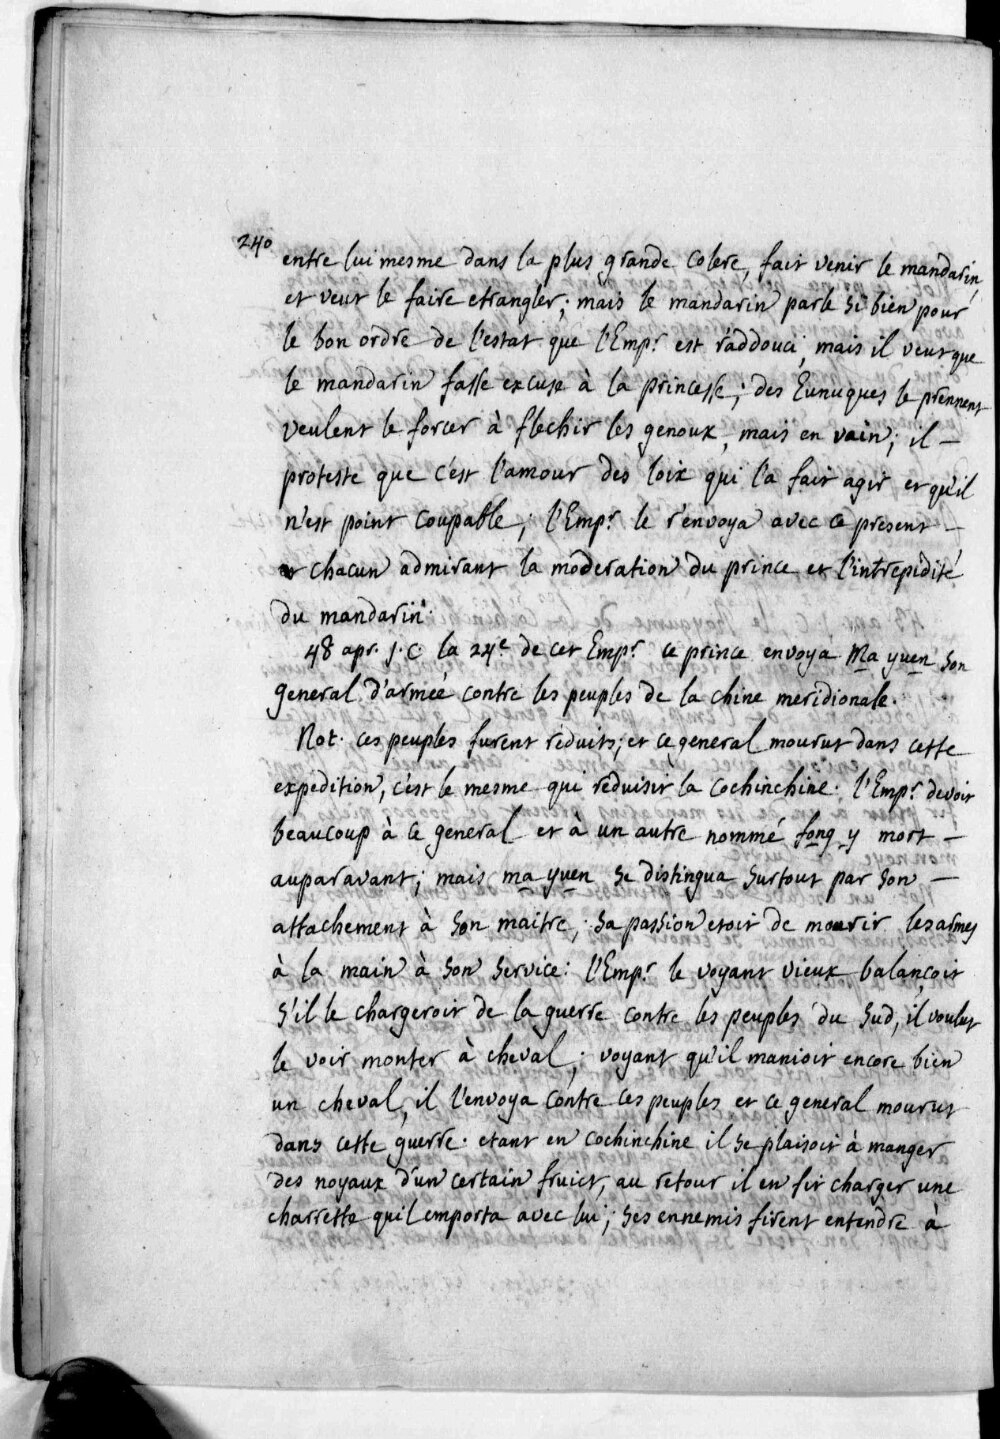 240
entre lui mesme dans la plus grande colere, fait venir le mandarin
et veut le faire etrangler; mais le mandarin parle si bien pour
le bon ordre de l'estat que l'Empr est raddouci; mais il veut que
le mandarin fasse excuse à la princesse; des Eunuques le prennent
veulent le forcer à flechir les genoux, mais en vain; il -
proteste que c'est l'amour des loix qui l'a fait agir et qu'il
n'est point coupable; l'Empr le r'envoya avec ce present -
et chacun admirant la moderation du prince et l'intrepidité
du mandarin.
48 apr. J.C. la 24e de cet Empr ce prince envoya Ma yuen son
general d'armée contre les peuples de la chine meridionale.
Not. ces peuples furent réduits; et ce general mourut dans cette
expedition, c'est le mesme qui reduisit la Cochinchine. l'Empr devoit
beaucoup à ce general et à un autre nommé fong y mort -
auparavant; mais ma yuen se distingua surtout par son -
attachement à son maitre; sa passion etoit de mourir les armes
à la main à son service: l'Empr le voyant vieux balançoit
s'il le chargeroit de la guerre contre les peuples du sud, il voulut
le voir monter à cheval; voyant qu'il manioit encore bien
un cheval, il l'envoya contre ces peuples et ce general mourut
dans cette guerre. etant en cochinchine il se plaisoit à manger
des noyaux d'un certain fruict, au retour il en fit charger une
charrette quil emporta avec lui; ses ennemis firent entendre à